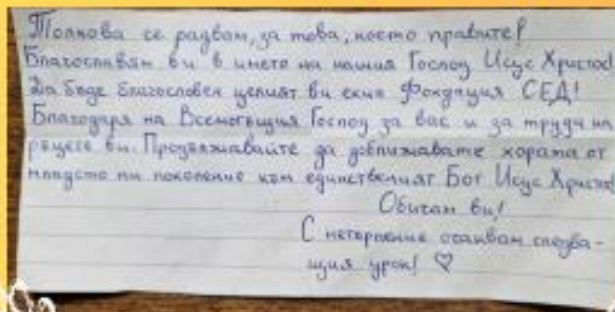 Толкова се радвам, за това, което правите!
Благославям ви в името на нашия Господ Исус Христос!
Да бъде благословен целият ви екип Фондация СЕД!
Благодаря на Всемогъщия Господ за вас и за труда на
ръцете ви. Продължавайте да доближавате хората от
младото ни поколение към единственият Бог Исус Христос!
Обичам ви!
С нетърпение очаквам следва-
щия урок! ♡